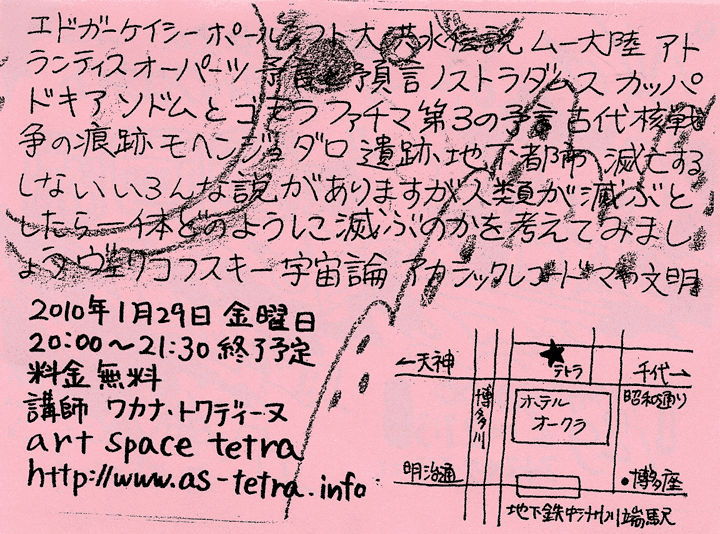 エドガーケイシー ポールシフト 大洪水伝説 ムー大陸 アト
ランティス オーパーツ 予言と予預言 ノストラダムス カッパ
ドキア ソドムとゴモラ ファチマ第3の予言 古代核戦
争の痕跡 モヘンジョダロ 遺跡 地下都市 滅亡する
しない いろんな説がありますが人類が滅ぶと
したら一体どのように滅ぶのかを考えてみまし
ょう ヴェリコフスキー宇宙論 アカシックレコード マヤ文明
2010年1月29日 金曜日
20:00〜21:30 終了予定
料金無料
講師 ワカナ・トワディーヌ
art space tetra
http://www.as-tetra.info
←天神
★
テトラ
千代→
昭和通り
博多川
ホテル
オークラ
明治通
•博多座
地下鉄中洲川端駅